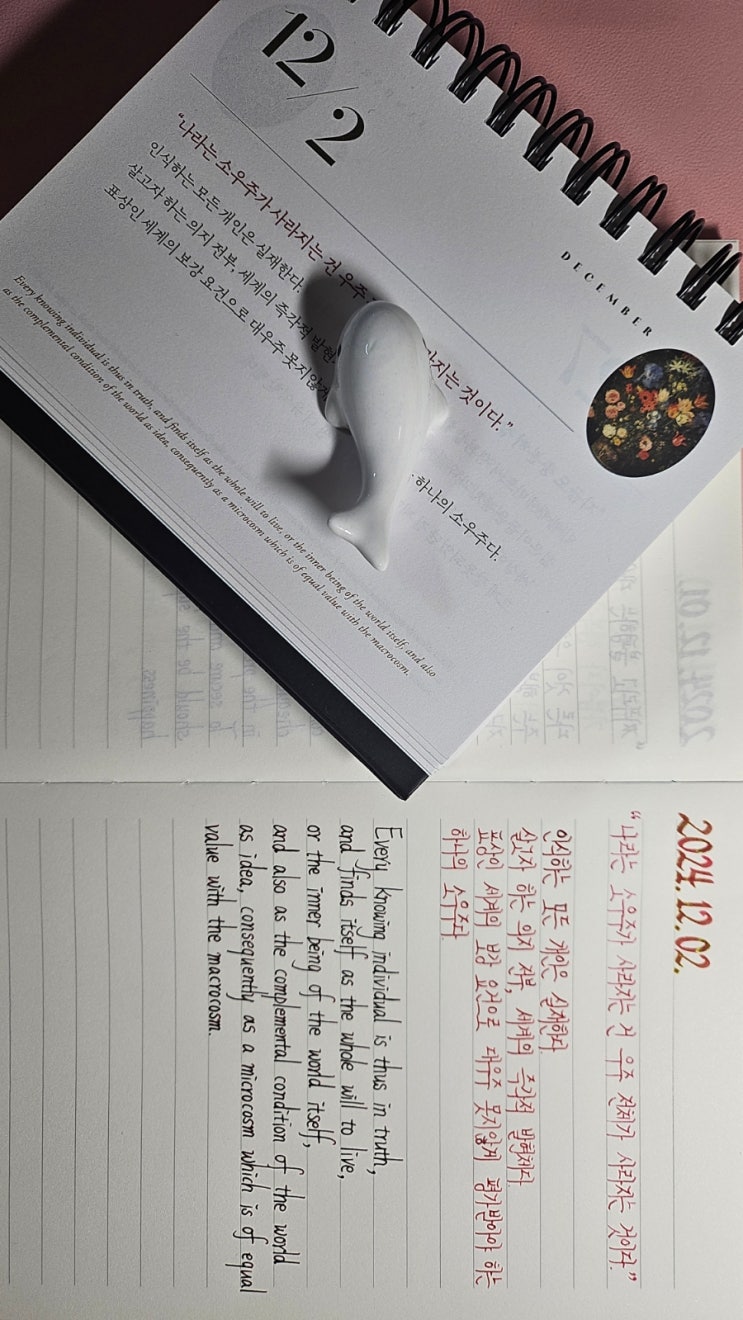 12/2
DECEMBER
"나라는 소우주가 사라지는 건 우주 라지는 것이다."
인식하는 모든 개인은 실재한다.
살고자 하는 의지 전부, 세계의 즉각적 발현
표상인 세계의 보강 요건으로 대우주 못지않게 하나의 소우주다.
Every knowing individual is thus in truth, and finds itself as the whole will to live, or the inner being of the world itself, and also
as the complemental condition of the world as idea, consequently as a microcosm which is of equal value with the macrocosm.
2024. 12. 02.
"나라는 소우주가 사라지는 건 우주 전체가 사라지는 것이다."
인식하는 모든 개인은 실재한다
살고자 하는 의지 전부, 세계의 즉각적 발현체다
표상인 세계의 보강 요건으로 대우주 못지않게 평가받아야 하는
하나의 소우주다.
Every knowing individual is thus in truth,
and finds itself as the whole will to live,
or the inner being of the world itself,
and also as the complemental condition of the world
as idea, consequently as a microcosm which is of equal
value with the macrocosm.